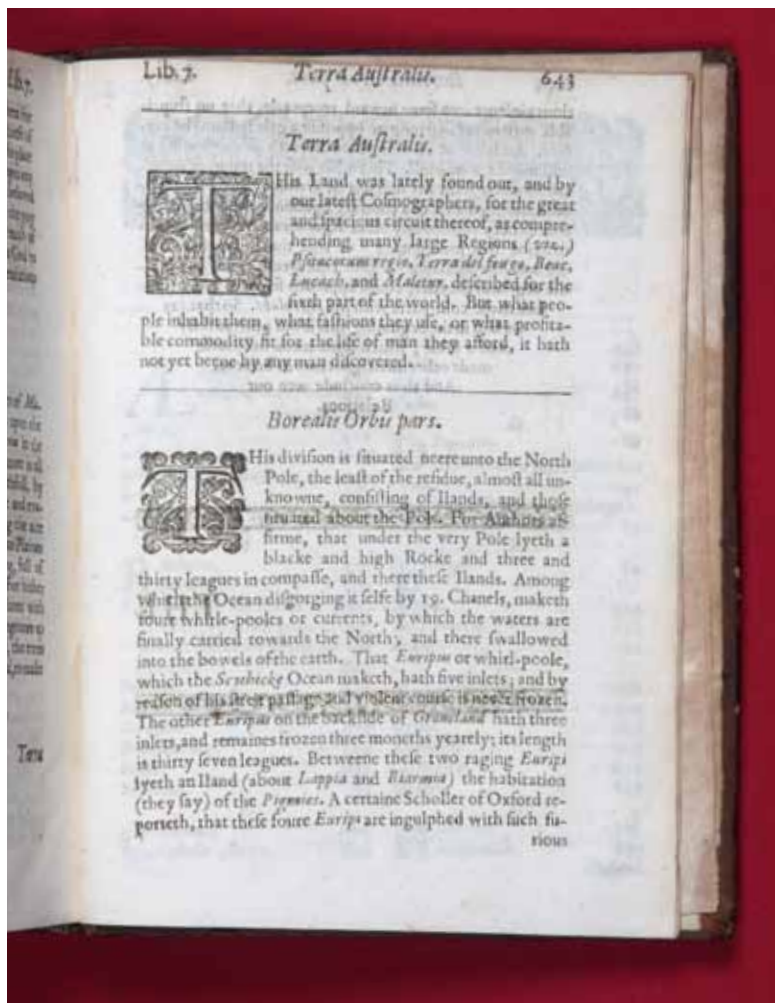 Lib. 7. Terra Auſtralis. 643
Terra Auſtralis.
THis Land was lately found out, and by
our lateſt Coſmographers, for the great
and ſpacious circuit thereof, as compre-
hending many large Regions (viz.)
Pſitacorum regio, Terra del fuego, Beac,
Lucach, and Maletur, deſcribed for the
ſixth part of the world. But what peo-
ple inhabit them, what faſhions they uſe, or what profita-
ble commodity fit for the life of man they afford, it hath
not yet beene by any man diſcovered.
Borealis Orbis pars.
THis diviſion is ſituated neere unto the North
Pole, the leaſt of the reſidue, almoſt all un-
knowne, conſiſting of Ilands, and thoſe
ſituated about the Pole. For Authors af-
firme, that under the very Pole lyeth a
blacke and high Rocke and three and
thirty leagues in compaſſe, and there theſe Ilands. Among
which the Ocean diſgorging it ſelfe by 19. Chanels, maketh
foure whirle-pooles or currents, by which the waters are
finally carried towards the North, and there ſwallowed
into the bowels of the earth. That Euripus or whirl-poole,
which the Ocean maketh, hath five inlets; and by
reaſon of his ſtreit paſſage and violent courſe is never frozen.
The other Euripus on the backſide of Groneland hath three
inlets, and remaines frozen three moneths yearely; its length
is thirty ſeven leagues. Betweene theſe two raging Euripi
lyeth an Iland (about Lappia and Biarmia) the habitation
(they ſay) of the Pigmies. A certaine Scholler of Oxford re-
porteth, that theſe foure Euripi are ingulphed with ſuch fu-
rious